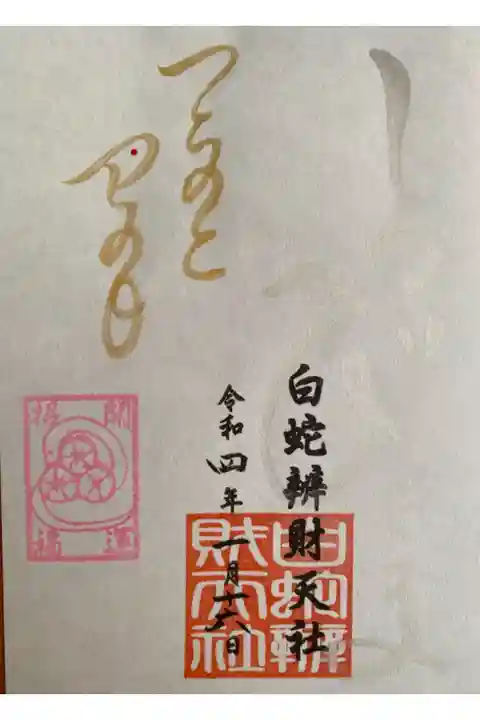 白蛇辨財天社
白蛇辨
財天社
令和四年一月十六日
つちのと
開運
招福